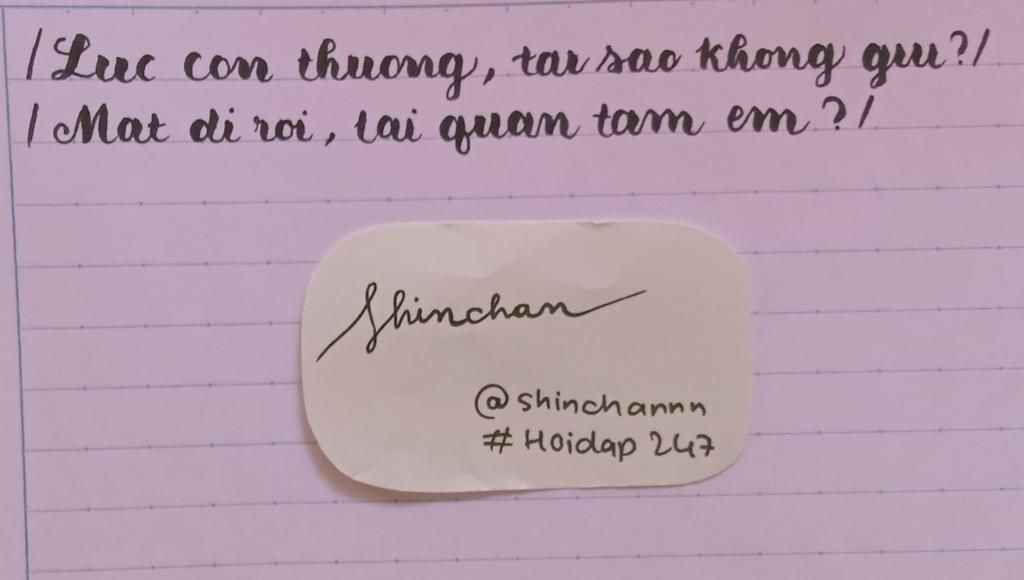 /Luc con thuong, tai sao khong giu?/
/Mat di roi, lai quan tam em?/
Shinchan
@shinchannn
# Hoidap 247